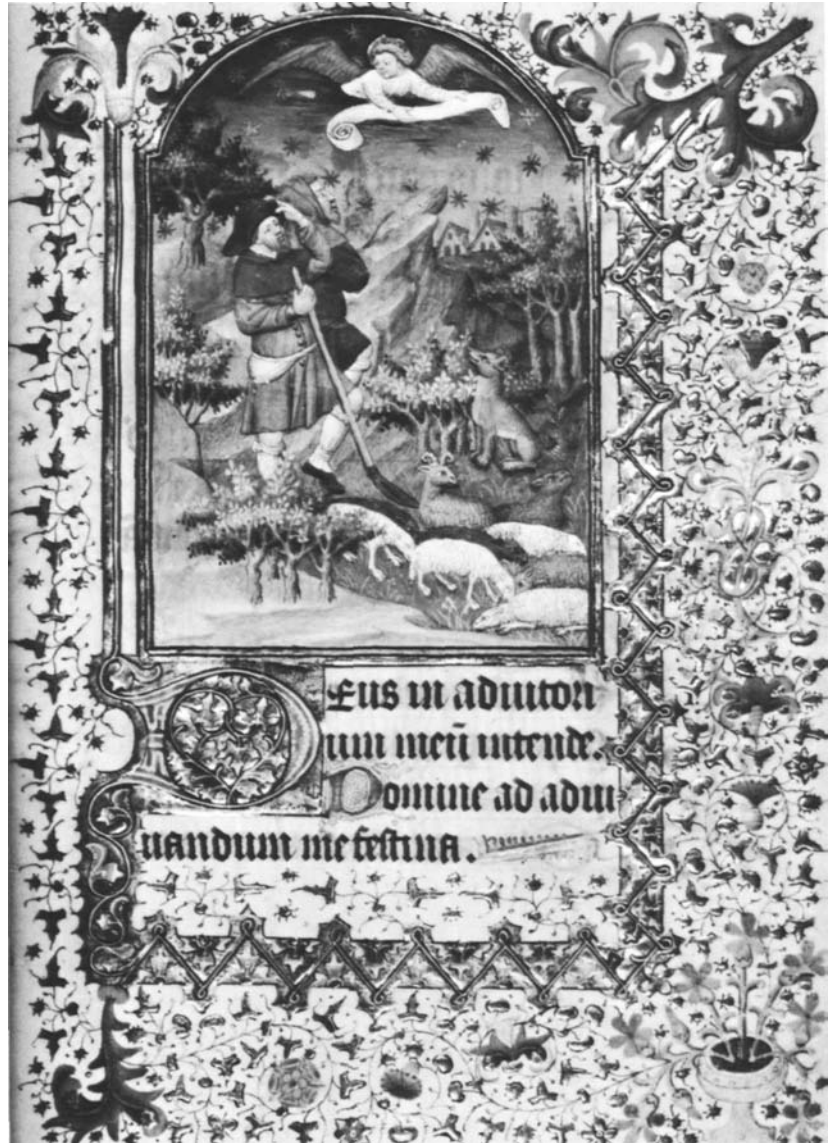 Deus in adiutori
um meū intende.
Domine ad adiu
uandum me festina.